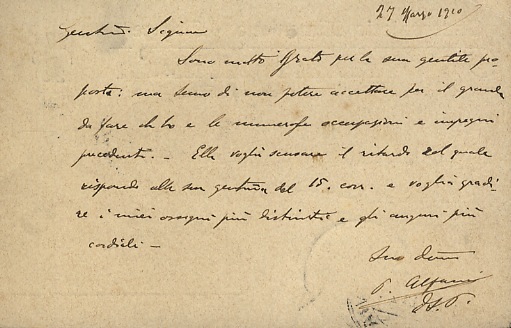 27 Marzo 1910
Gentilmo Signore
Sono molto grato per la sua gentile pro-
posta: ma temo di non potere accettare per il grande
da fare che ho e le numerose occupazioni e impegni
precedenti. - Ella voglia scusare il ritardo col quale
rispondo alla sua gentilma del 15. corr. e voglia gradi-
re i miei ossequi più distinti e gli auguri più
cordiali -
Suo dev
P. Alfani